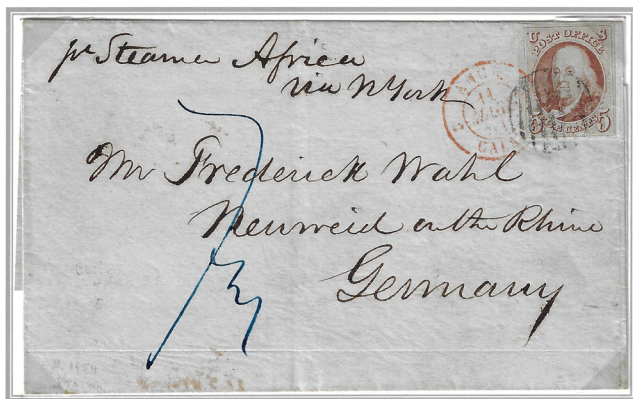 pr Steamer Africa
via N York
U S
POST OFFICE
FIVE CENTS
5 5
14
CALAIS
Mr Frederick Wahl
Neuweid on the Rhine
Germany